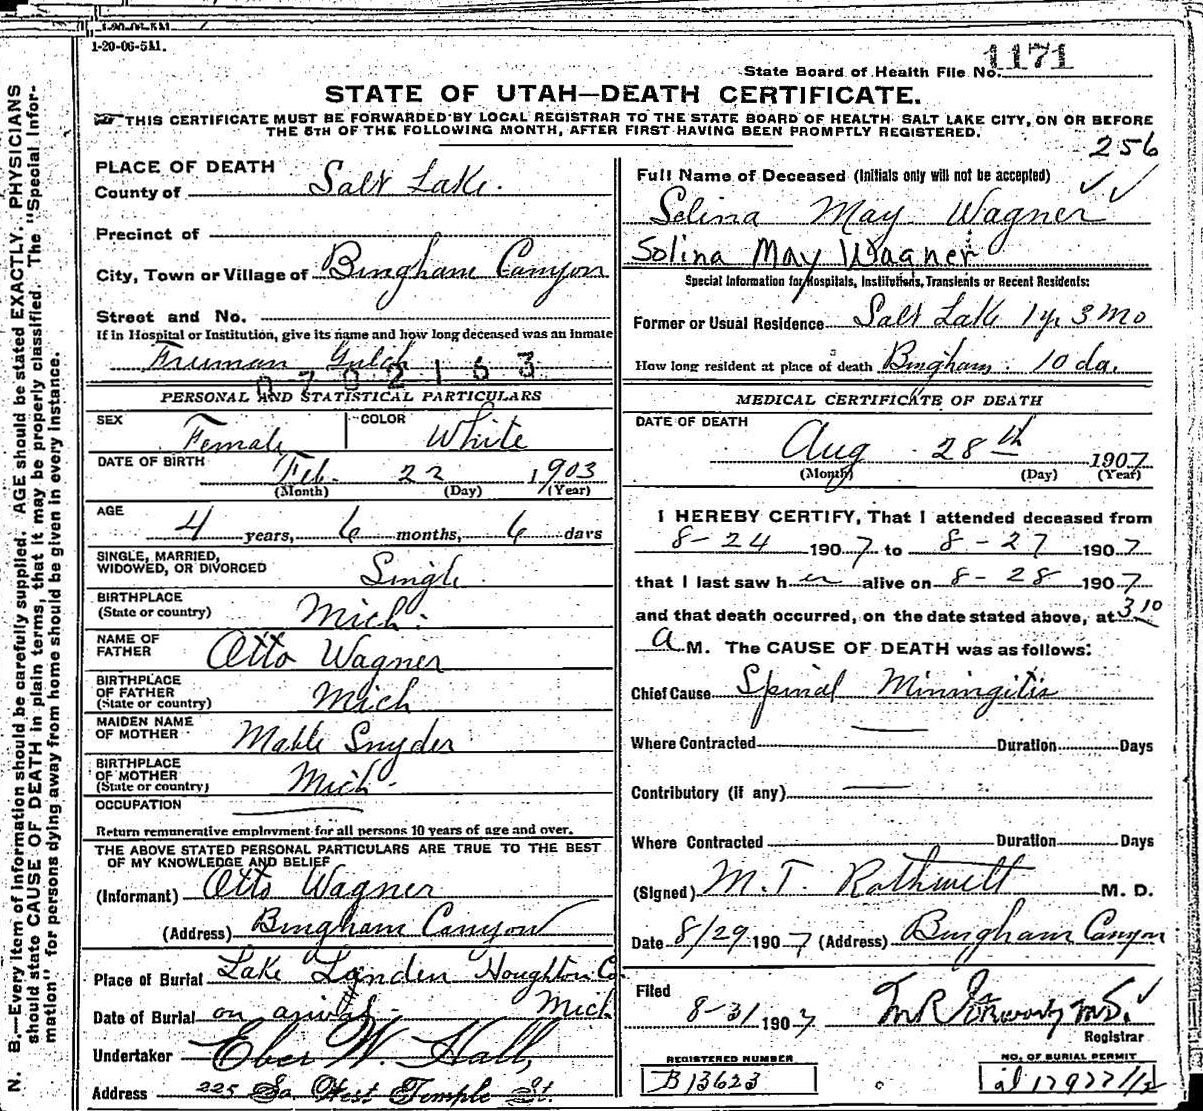 1-20-06-5M.
State Board of Health File No. 1171
STATE OF UTAH—DEATH CERTIFICATE.
THIS CERTIFICATE MUST BE FORWARDED BY LOCAL REGISTRAR TO THE STATE BOARD OF HEALTH SALT LAKE CITY, ON OR BEFORE
THE 5TH OF THE FOLLOWING MONTH, AFTER FIRST HAVING BEEN PROMPTLY REGISTERED.
256
N. B.—Every item of information should be carefully supplied. AGE should be stated EXACTLY. PHYSICIANS
should state CAUSE OF DEATH in plain terms, that it may be properly classified. The "Special Infor-
mation" for persons dying away from home should be given in every instance.
PLACE OF DEATH
County of Salt Lake.
Precinct of
City, Town or Village of Bingham Canyon
Street and No.
If in Hospital or Institution, give its name and how long deceased was an inmate
Freeman Gulch
0702163
PERSONAL AND STATISTICAL PARTICULARS
SEX Female COLOR White
DATE OF BIRTH Feb. 22 1903
(Month) (Day) (Year)
AGE
4 years, 6 months, 6 days
SINGLE, MARRIED,
WIDOWED, OR DIVORCED Single
BIRTHPLACE
(State or country) Mich.
NAME OF
FATHER Otto Wagner
BIRTHPLACE
OF FATHER
(State or country) Mich
MAIDEN NAME
OF MOTHER Mable Snyder
BIRTHPLACE
OF MOTHER
(State or country) Mich.
OCCUPATION
Return remunerative employment for all persons 10 years of age and over.
THE ABOVE STATED PERSONAL PARTICULARS ARE TRUE TO THE BEST
OF MY KNOWLEDGE AND BELIEF
(Informant) Otto Wagner
(Address) Bingham Canyon
Place of Burial Lake Linden Houghton Co.
Mich
Date of Burial on arival
Undertaker Eber W. Hall,
Address 225 So. West Temple St.
Full Name of Deceased (Initials only will not be accepted)
Selina May Wagner
Solina May Wagner
Special Information for Hospitals, Institutions, Transients or Recent Residents:
Former or Usual Residence Salt Lake 1 yr 3 mo
How long resident at place of death Bingham. 10 da.
MEDICAL CERTIFICATE OF DEATH
DATE OF DEATH
Aug 28th 1907
(Month) (Day) (Year)
I HEREBY CERTIFY, That I attended deceased from
8-24 1907 to 8-27 1907
that I last saw her alive on 8-28 1907
and that death occurred, on the date stated above, at 3 10
A M. The CAUSE OF DEATH was as follows:
Chief Cause Spinal Miningitis
Where Contracted Duration Days
Contributory (if any)
Where Contracted Duration Days
(Signed) M. T. Rothwell M. D.
Date 8/29 1907 (Address) Bingham Canyon
Filed
8-31 1907
Registrar
REGISTERED NUMBER
B13623
NO. OF BURIAL PERMIT